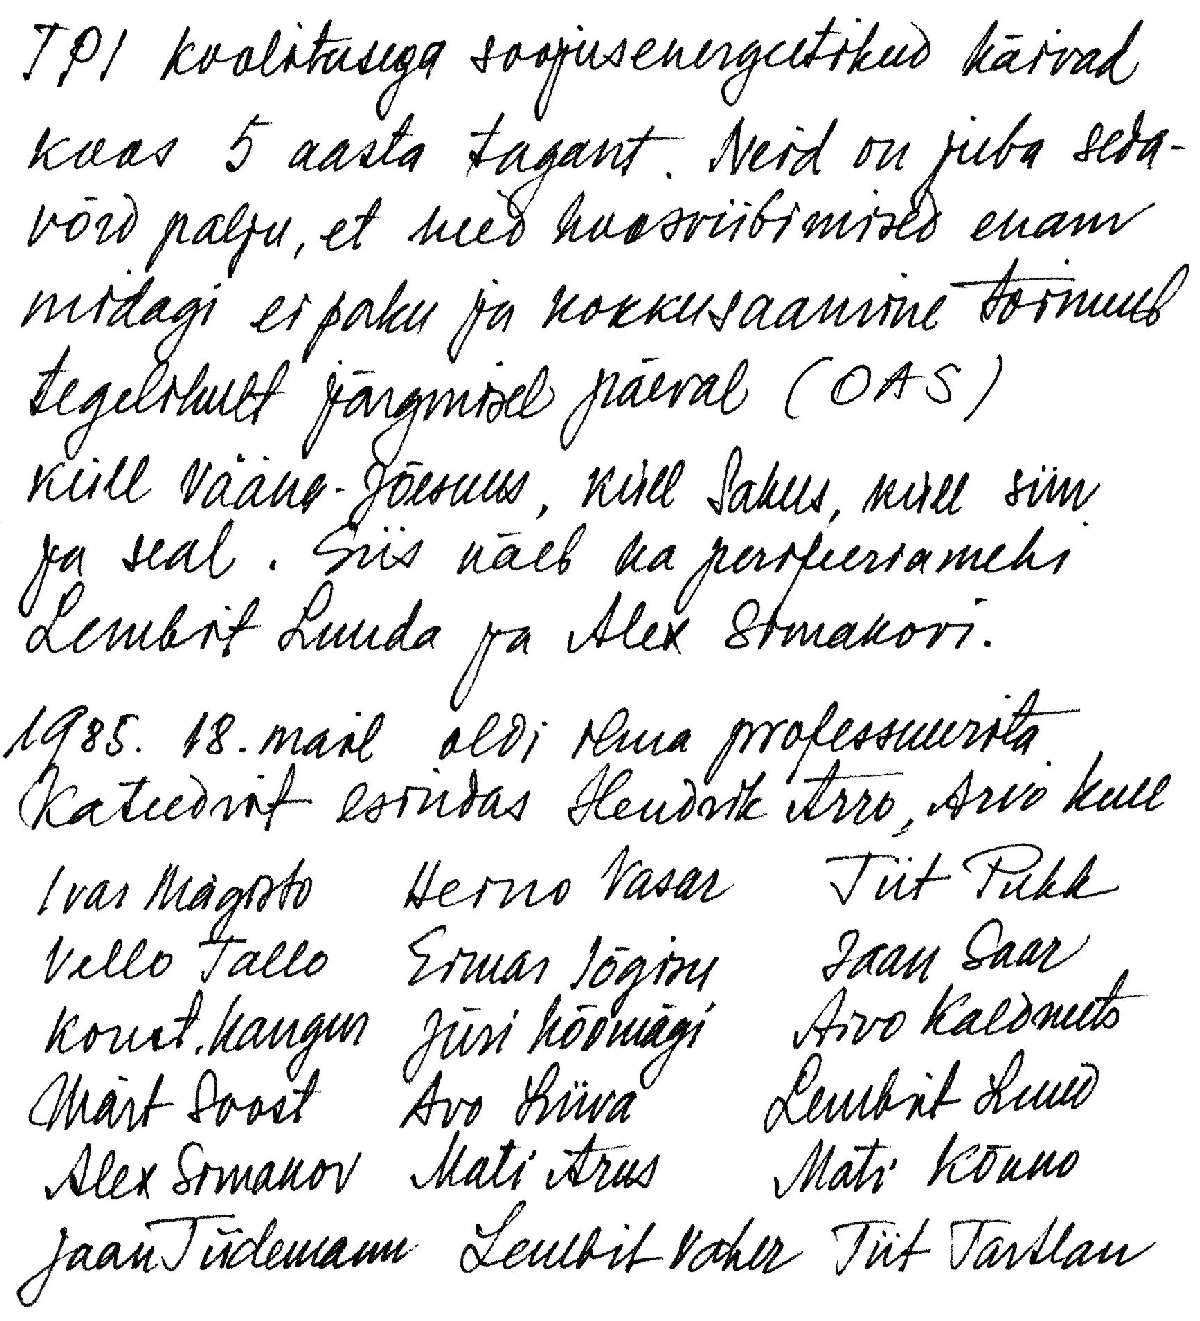 TPI koolitusega soojusenergeetikud käivad
koos 5 aasta tagant. Neid on juba seda-
võrd palju, et need koosviibimised enam
midagi ei paku ja kokkusaamine toimub
tegelikult järgmisel päeval (OAS)
küll Vääna-Jõesuus, küll Sakus, küll siin
ja seal. Siis näeb ka perifeeriamehi
Lembit Luuda ja Alex Simakovi.
1985. 18. mail oldi ilma professuurita
Kateedrit esindas Hendrik Arro, Arvo Kull
Ivar Mägisto Heino Vasar Tiit Pukk
Vello Tallo Eimar Jõgisu Jaan Saar
Konst. Kangur Jüri Köömägi Aivo Kaldmets
Märt Soost Avo Liiva Lembit Luud
Alex Simakov Mati Arus Mati Kõnno
Jaan Tiidemann Lembit Vaher Tiit Tartlan